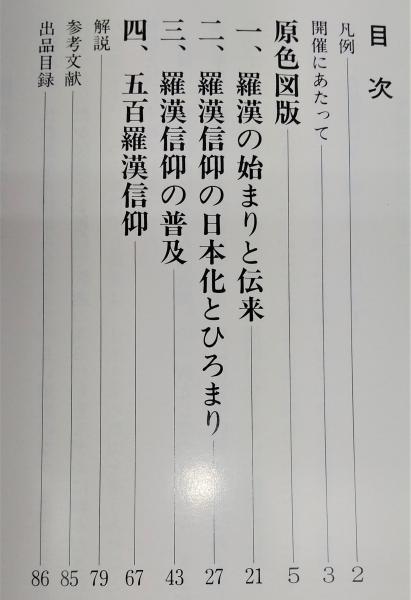 目次
凡例 2
開催にあたって 3
原色図版 5
一、羅漢の始まりと伝来 21
二、羅漢信仰の日本化とひろまり 27
三、羅漢信仰の普及 43
四、五百羅漢信仰 67
解説 79
参考文献 85
出品目録 86